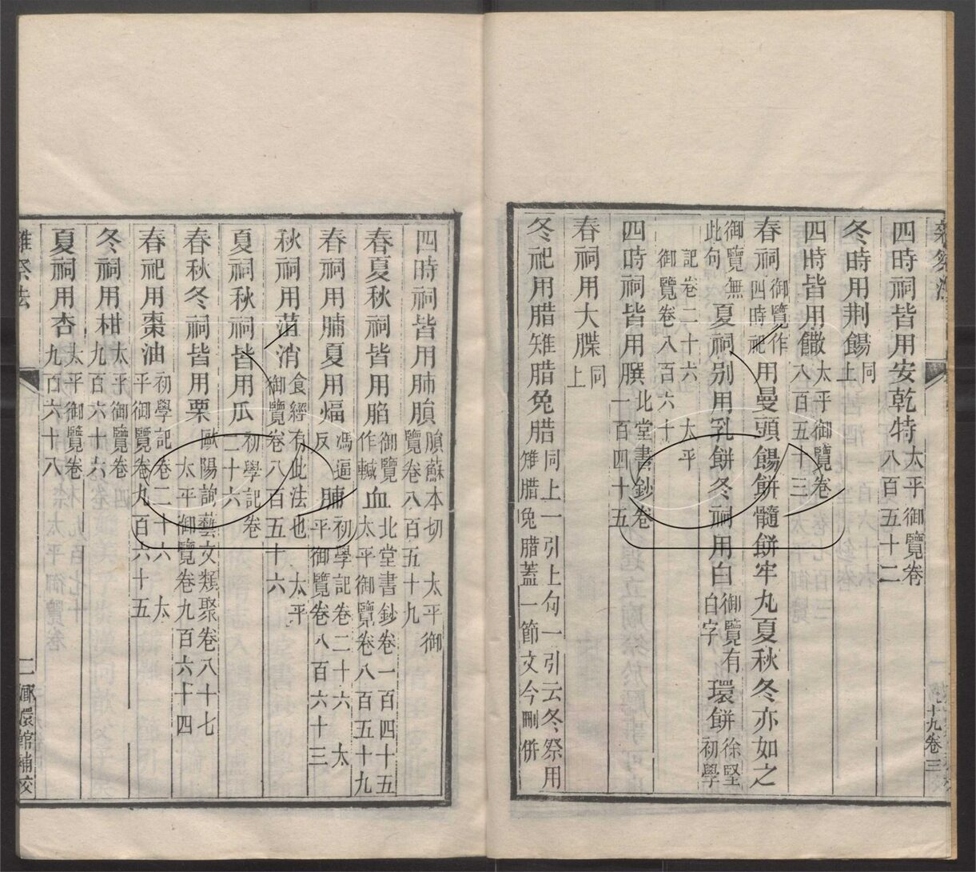 四時祠皆用安乾特 太平御覽卷八百五十二
冬時用荆餳 同上
四時皆用饊 太平御覽卷八百五十三
春祠 御覽作四時祀 用曼頭餳餅髓餅牢丸夏秋冬亦如之
御覽無此句 夏祠別用乳餅冬祠用白 御覽有白字 環餅 徐堅初學
記卷二十六 太平御覽卷八百六十
四時祠皆用䐑 北堂書鈔卷一百四十五
春祠用大牒 同上
冬祀用腊雉腊兔腊 同上一引上句一引云冬祭用雉腊兔腊蓋一節文今刪併
四時祠皆用肺䐞 䐞蘇本切 太平御覽卷八百五十九
春夏秋祠皆用䐄 御覽作䘓 血 北堂書鈔卷一百四十五 太平御覽卷八百五十九
春祠用脯夏用煏 馮逼反 脯 初學記卷二十六 太平御覽卷八百六十三
秋祠用葅消 食經有此法也 太平御覽卷八百五十六
夏祠秋祠皆用瓜 初學記卷二十六
春秋冬祠皆用栗 歐陽詢藝文類聚卷八十七 太平御覽卷九百六十四
春祀用棗油 初學記卷二十六 太平御覽卷九百六十五
冬祠用柑 太平御覽卷九百六十六
夏祠用杏 太平御覽卷九百六十八
雜祭法
二